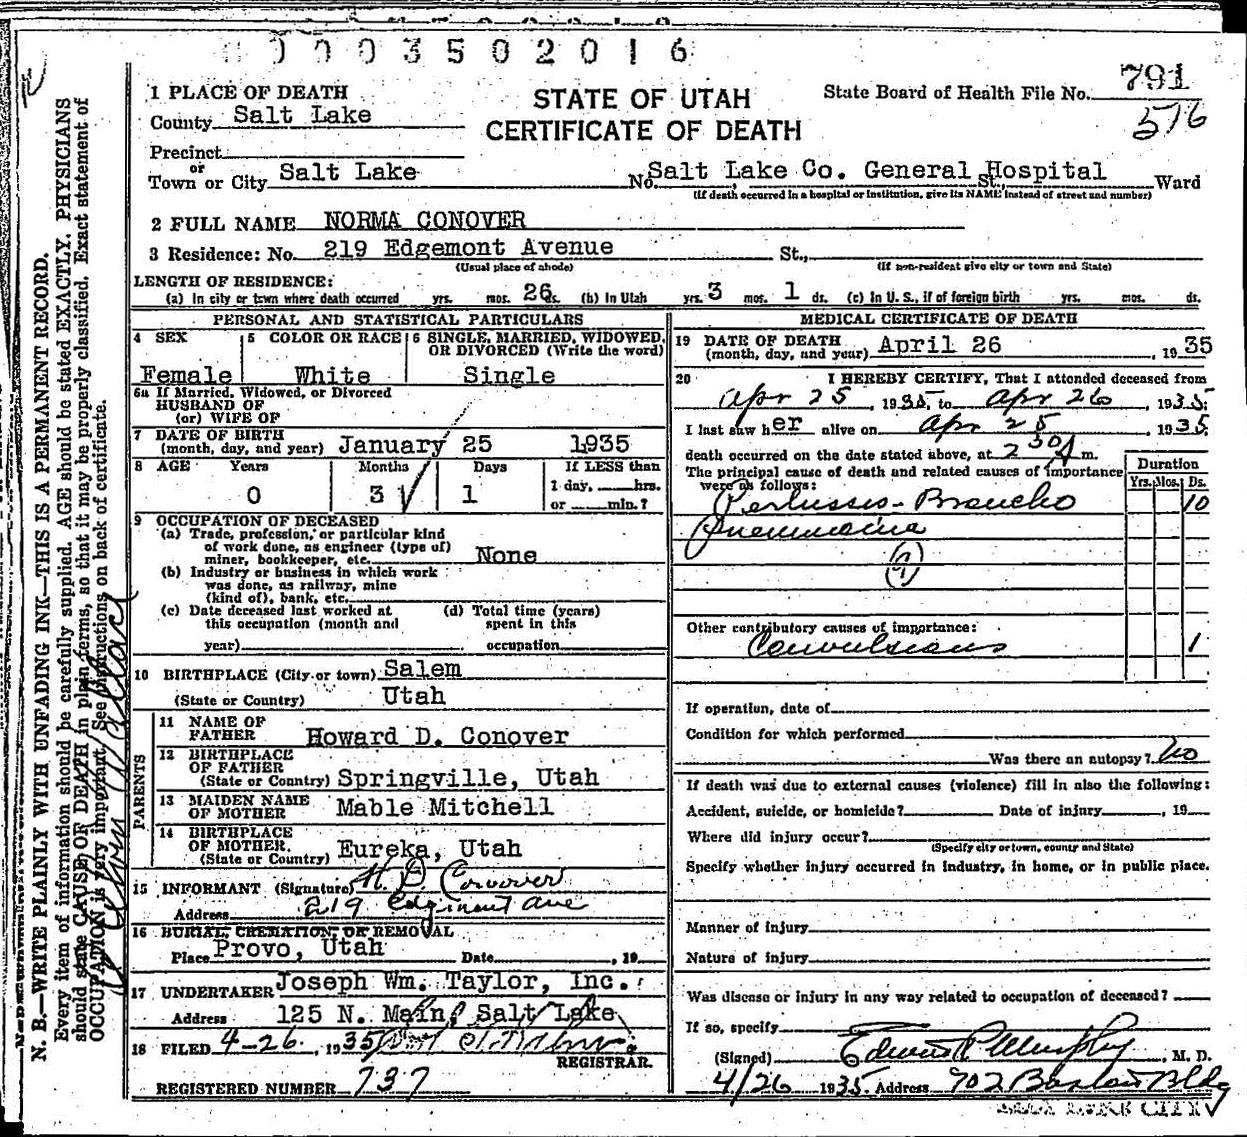 0003502016
1 PLACE OF DEATH
STATE OF UTAH
CERTIFICATE OF DEATH
State Board of Health File No. 791
516
County Salt Lake
Precinct
or
Town or City Salt Lake No. Salt Lake Co. General Hospital St., Ward
(If death occurred in a hospital or institution, give its NAME instead of street and number)
2 FULL NAME NORMA CONOVER
3 Residence: No. 219 Edgemont Avenue St.,
(Usual place of abode) (If non-resident give city or town and State)
LENGTH OF RESIDENCE:
(a) In city or town where death occurred yrs. mos. 26 ds. (b) In Utah yrs. 3 mos. 1 ds. (c) In U. S., if of foreign birth yrs. mos. ds.
PERSONAL AND STATISTICAL PARTICULARS
4 SEX
Female
5 COLOR OR RACE
White
6 SINGLE, MARRIED, WIDOWED, OR DIVORCED (Write the word)
Single
6a If Married, Widowed, or Divorced
HUSBAND OF
(or) WIFE OF
7 DATE OF BIRTH
(month, day, and year) January 25 1935
8 AGE Years Months Days If LESS than
1 day, hrs.
or min.?
0 3 1
9 OCCUPATION OF DECEASED
(a) Trade, profession, or particular kind
of work done, as engineer (type of)
miner, bookkeeper, etc. None
(b) Industry or business in which work
was done, as railway, mine
(kind of), bank, etc.
(c) Date deceased last worked at
this occupation (month and
year)
(d) Total time (years)
spent in this
occupation
10 BIRTHPLACE (City or town) Salem
(State or Country) Utah
PARENTS
11 NAME OF
FATHER Howard D. Conover
12 BIRTHPLACE
OF FATHER
(State or Country) Springville, Utah
13 MAIDEN NAME
OF MOTHER Mable Mitchell
14 BIRTHPLACE
OF MOTHER.
(State or Country) Eureka, Utah
15 INFORMANT (Signature) H. D. Conover
Address 219 Edgmont Ave
16 BURIAL, CREMATION, OR REMOVAL
Place Provo, Utah Date , 19
17 UNDERTAKER Joseph Wm. Taylor, Inc.
Address 125 N. Main, Salt Lake
18 FILED 4-26. , 1935
REGISTRAR.
REGISTERED NUMBER 737
MEDICAL CERTIFICATE OF DEATH
19 DATE OF DEATH
(month, day, and year) April 26 , 1935
20 I HEREBY CERTIFY, That I attended deceased from
Apr 25 , 1935, to Apr 26 , 1935.
I last saw her alive on Apr 25 , 1935
death occurred on the date stated above, at 2 30 A m.
The principal cause of death and related causes of importance
were as follows:
Duration
Yrs. Mos. Ds.
Pertussis - Broncho 10
Pneumonia
(9)
Other contributory causes of importance:
Convulsions 1
If operation, date of
Condition for which performed
Was there an autopsy? No
If death was due to external causes (violence) fill in also the following:
Accident, suicide, or homicide? Date of injury , 19
Where did injury occur?
(Specify city or town, county and State)
Specify whether injury occurred in industry, in home, or in public place.
Manner of injury
Nature of injury
Was disease or injury in any way related to occupation of deceased?
If so, specify
(Signed) Edwin P Murphy , M. D.
4/26 1935 Address 902 Boston Bldg
SALT LAKE CITY
N. B.—WRITE PLAINLY WITH UNFADING INK—THIS IS A PERMANENT RECORD.
Every item of information should be carefully supplied. AGE should be stated EXACTLY. PHYSICIANS
should state CAUSE OF DEATH in plain terms, so that it may be properly classified. Exact statement of
OCCUPATION is very important. See instructions on back of certificate.